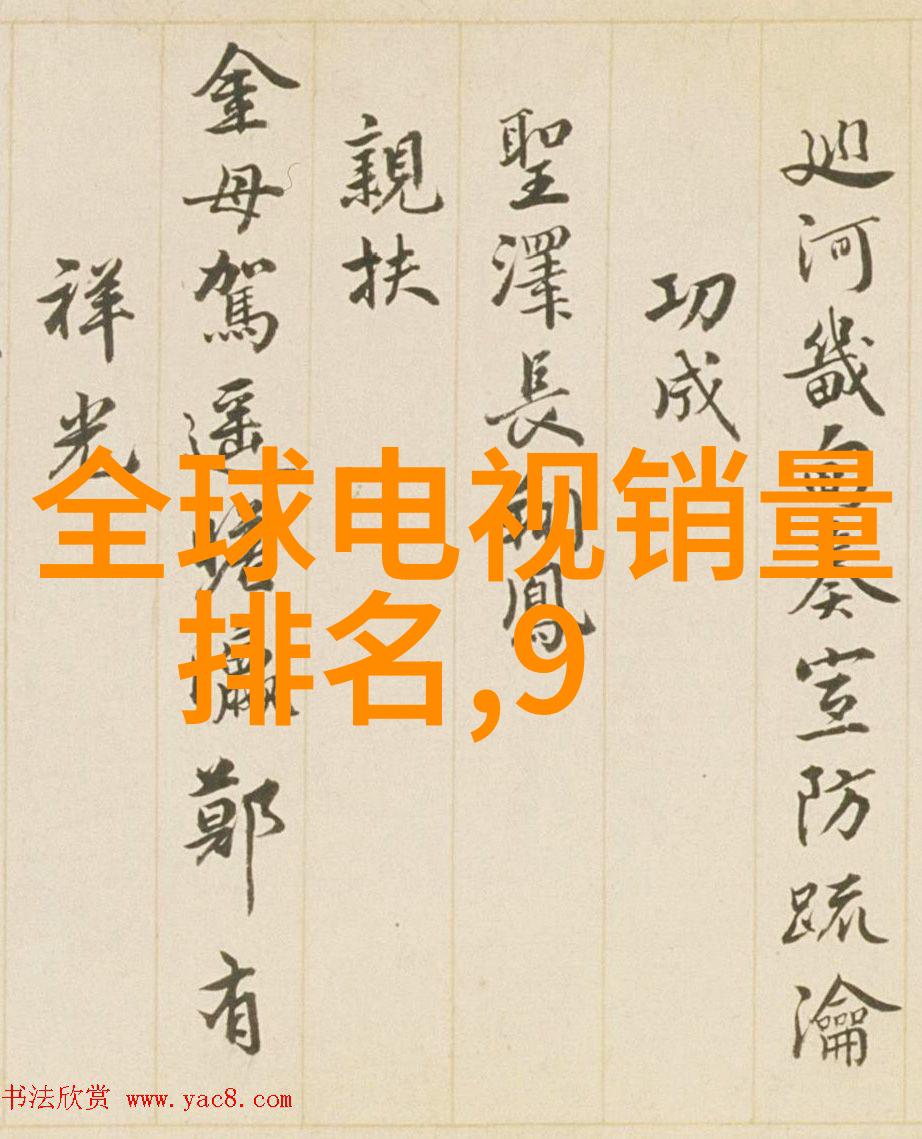 廵河畿面奏宣防疏瀹
功成
聖澤長鳳
親扶
金母駕遥鄭有
祥光
全球电视销量
排名,9
书法欣赏 www.yac8.com